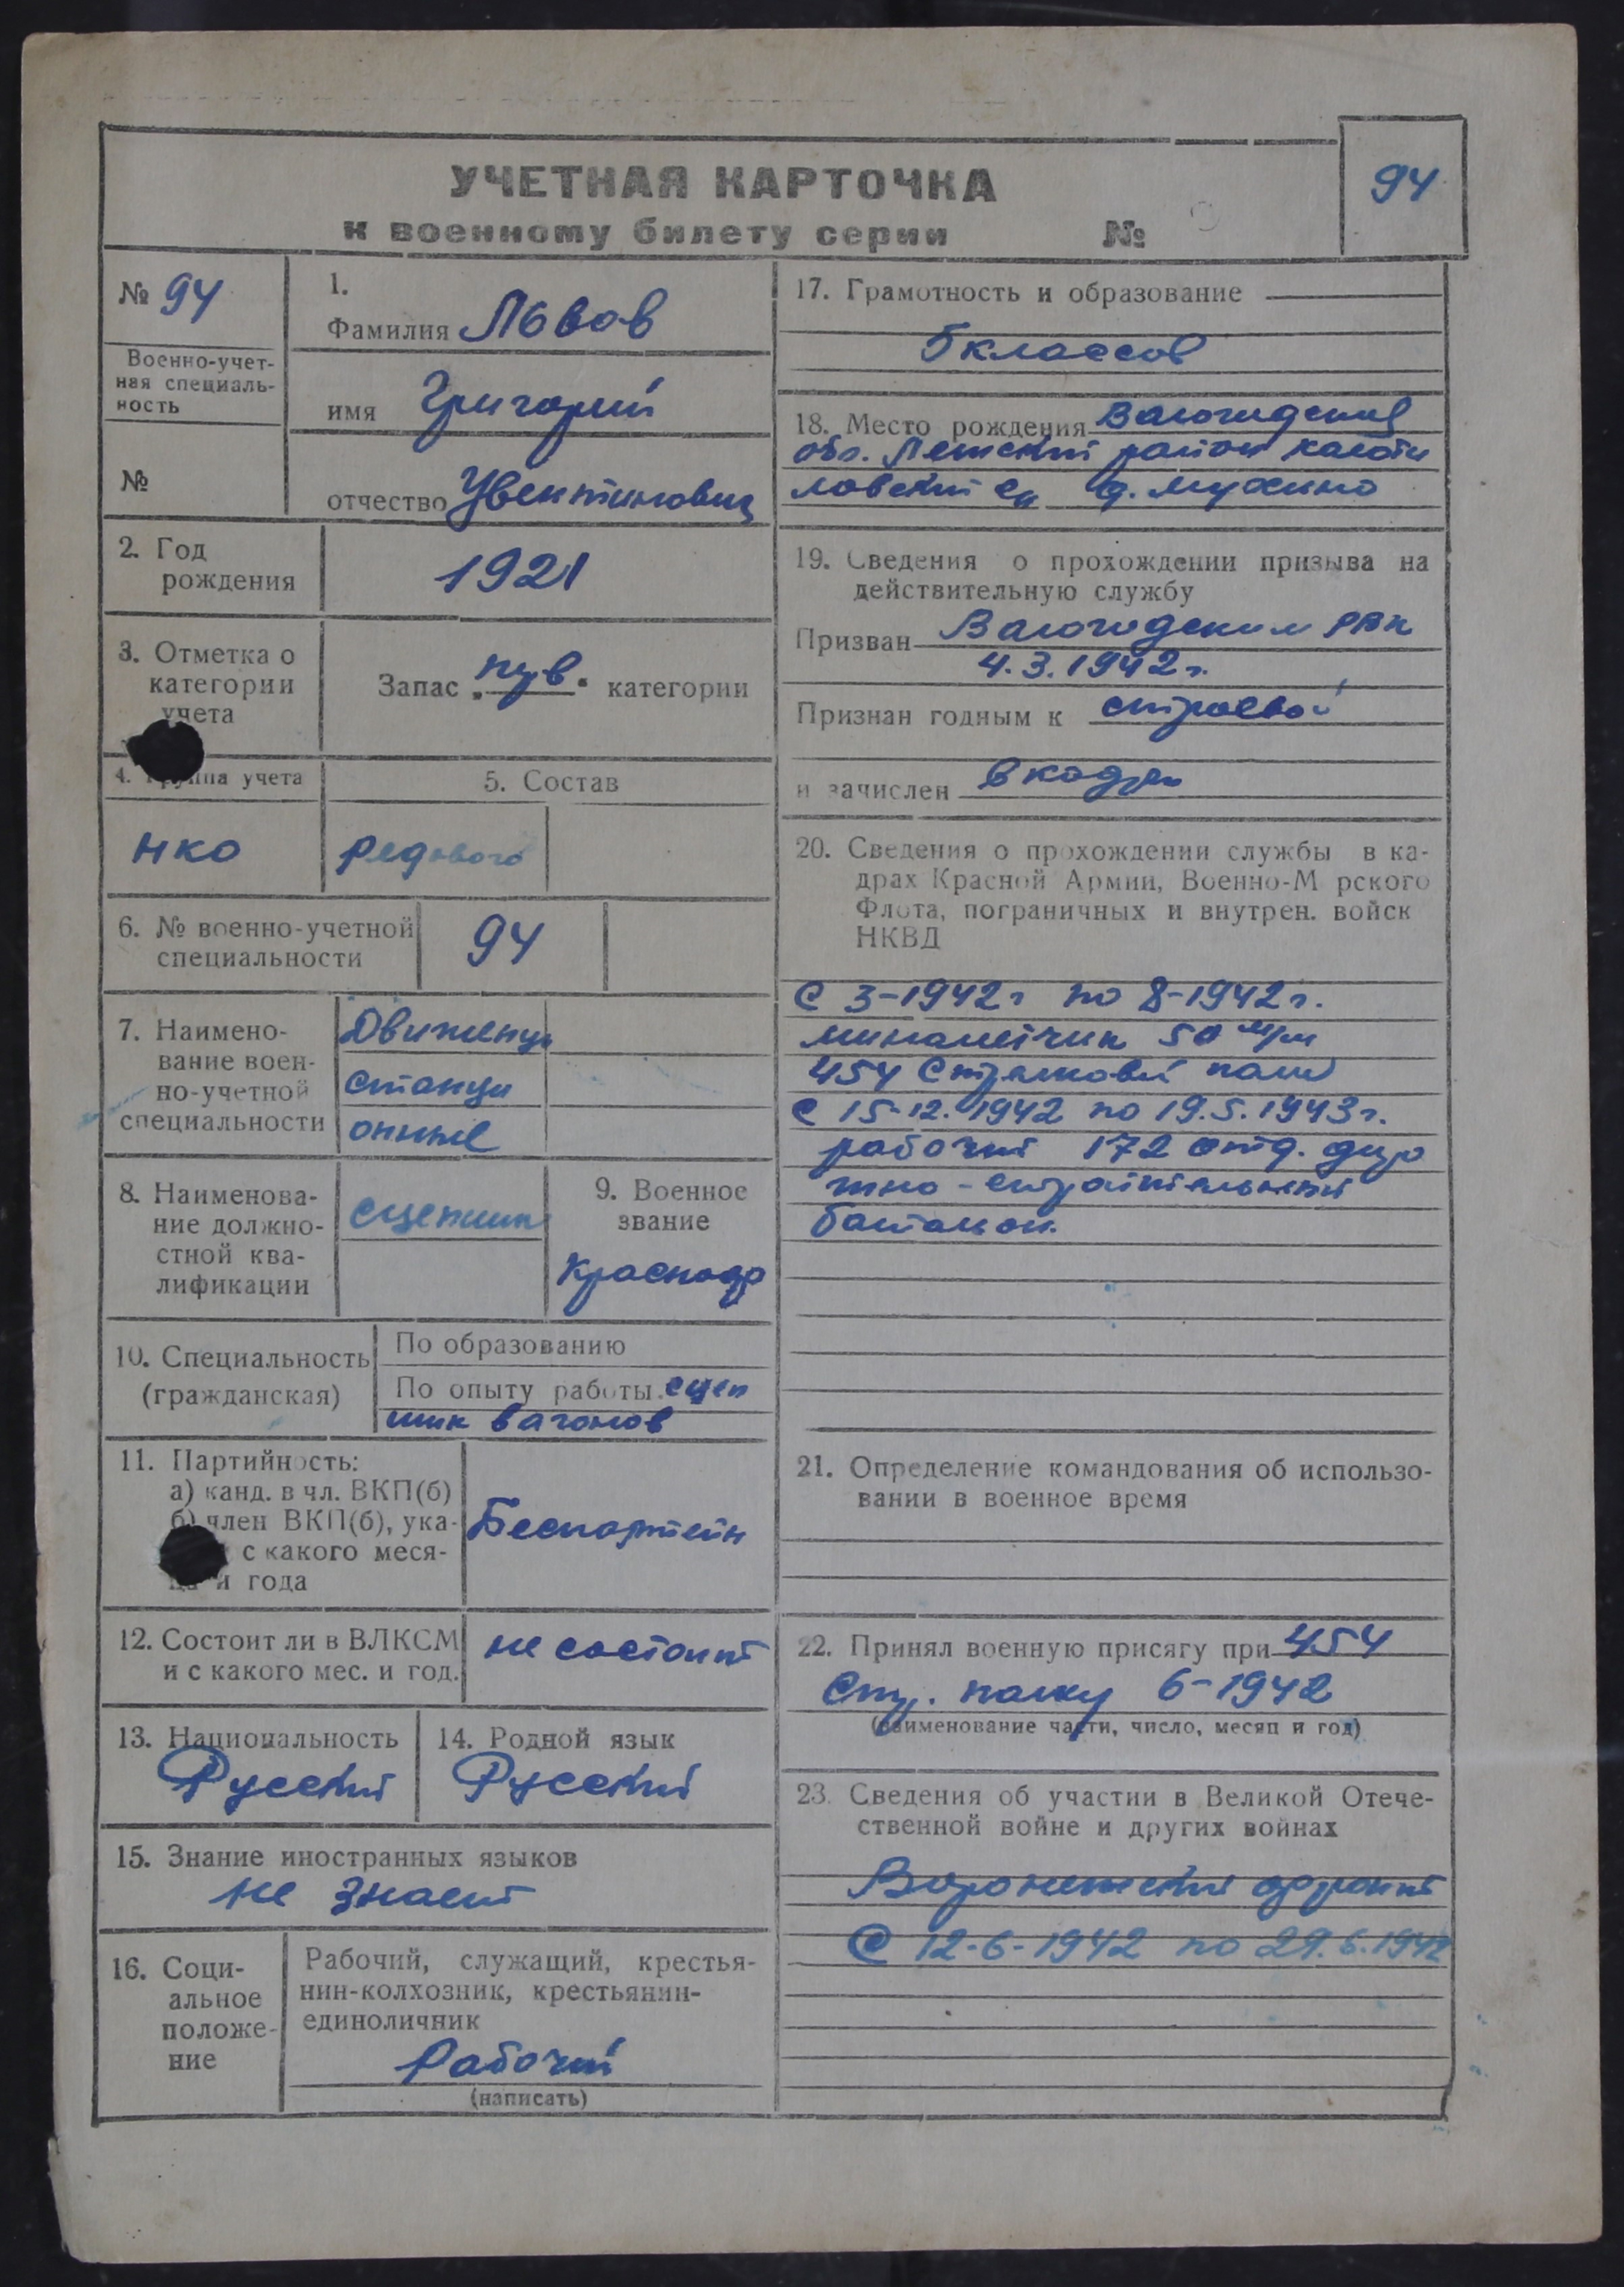 УЧЕТНАЯ КАРТОЧКА
к военному билету серии №
94
№ 94
Военно-учет-
ная специаль-
ность
№
1.
Фамилия Львов
имя Григорий
отчество Увентинович
2. Год
рождения
1921
3. Отметка о
категории
учета
Запас „ " категории
4. Группа учета
5. Состав
НКО
рядового
6. № военно-учетной
специальности
94
7. Наимено-
вание воен-
но-учетной
специальности
Движенцы
станци
онные
8. Наименова-
ние должно-
стной ква-
лификации
сцепщик
9. Военное
звание
Красноар
10. Специальность
(гражданская)
По образованию
По опыту работы сцеп
щик вагонов
11. Партийность:
а) канд. в чл. ВКП(б)
б) член ВКП(б), ука-
с какого меся-
ца и года
Беспартейн
12. Состоит ли в ВЛКСМ
и с какого мес. и год.
не состоит
13. Национальность
Русский
14. Родной язык
Русский
15. Знание иностранных языков
не знает
16. Соци-
альное
положе-
ние
Рабочий, служащий, крестья-
нин-колхозник, крестьянин-
единоличник
Рабочий
(написать)
17. Грамотность и образование
5 классов
18. Место рождения Вологодская
обл. Лежский район
ловский д. Мухино
19. Сведения о прохождении призыва на
действительную службу
Призван Вологодским РВК
4.3.1942 г.
Признан годным к строевой
и зачислен в кадры
20. Сведения о прохождении службы в ка-
драх Красной Армии, Военно-М рского
Флота, пограничных и внутрен. войск
НКВД
С 3-1942 г по 8-1942 г.
минаметчик 50 м/м
454 Стрелковый полк
С 15-12.1942 по 19.5.1943 г.
рабочий 172 отд. доро
жно-строительный
батальон.
21. Определение командования об использо-
вании в военное время
22. Принял военную присягу при 454
Стр. полку 6-1942
(наименование части, число, месяц и год)
23. Сведения об участии в Великой Отече-
ственной войне и других войнах
Воронежский фронт
С 12-6-1942 по 29.6.1942